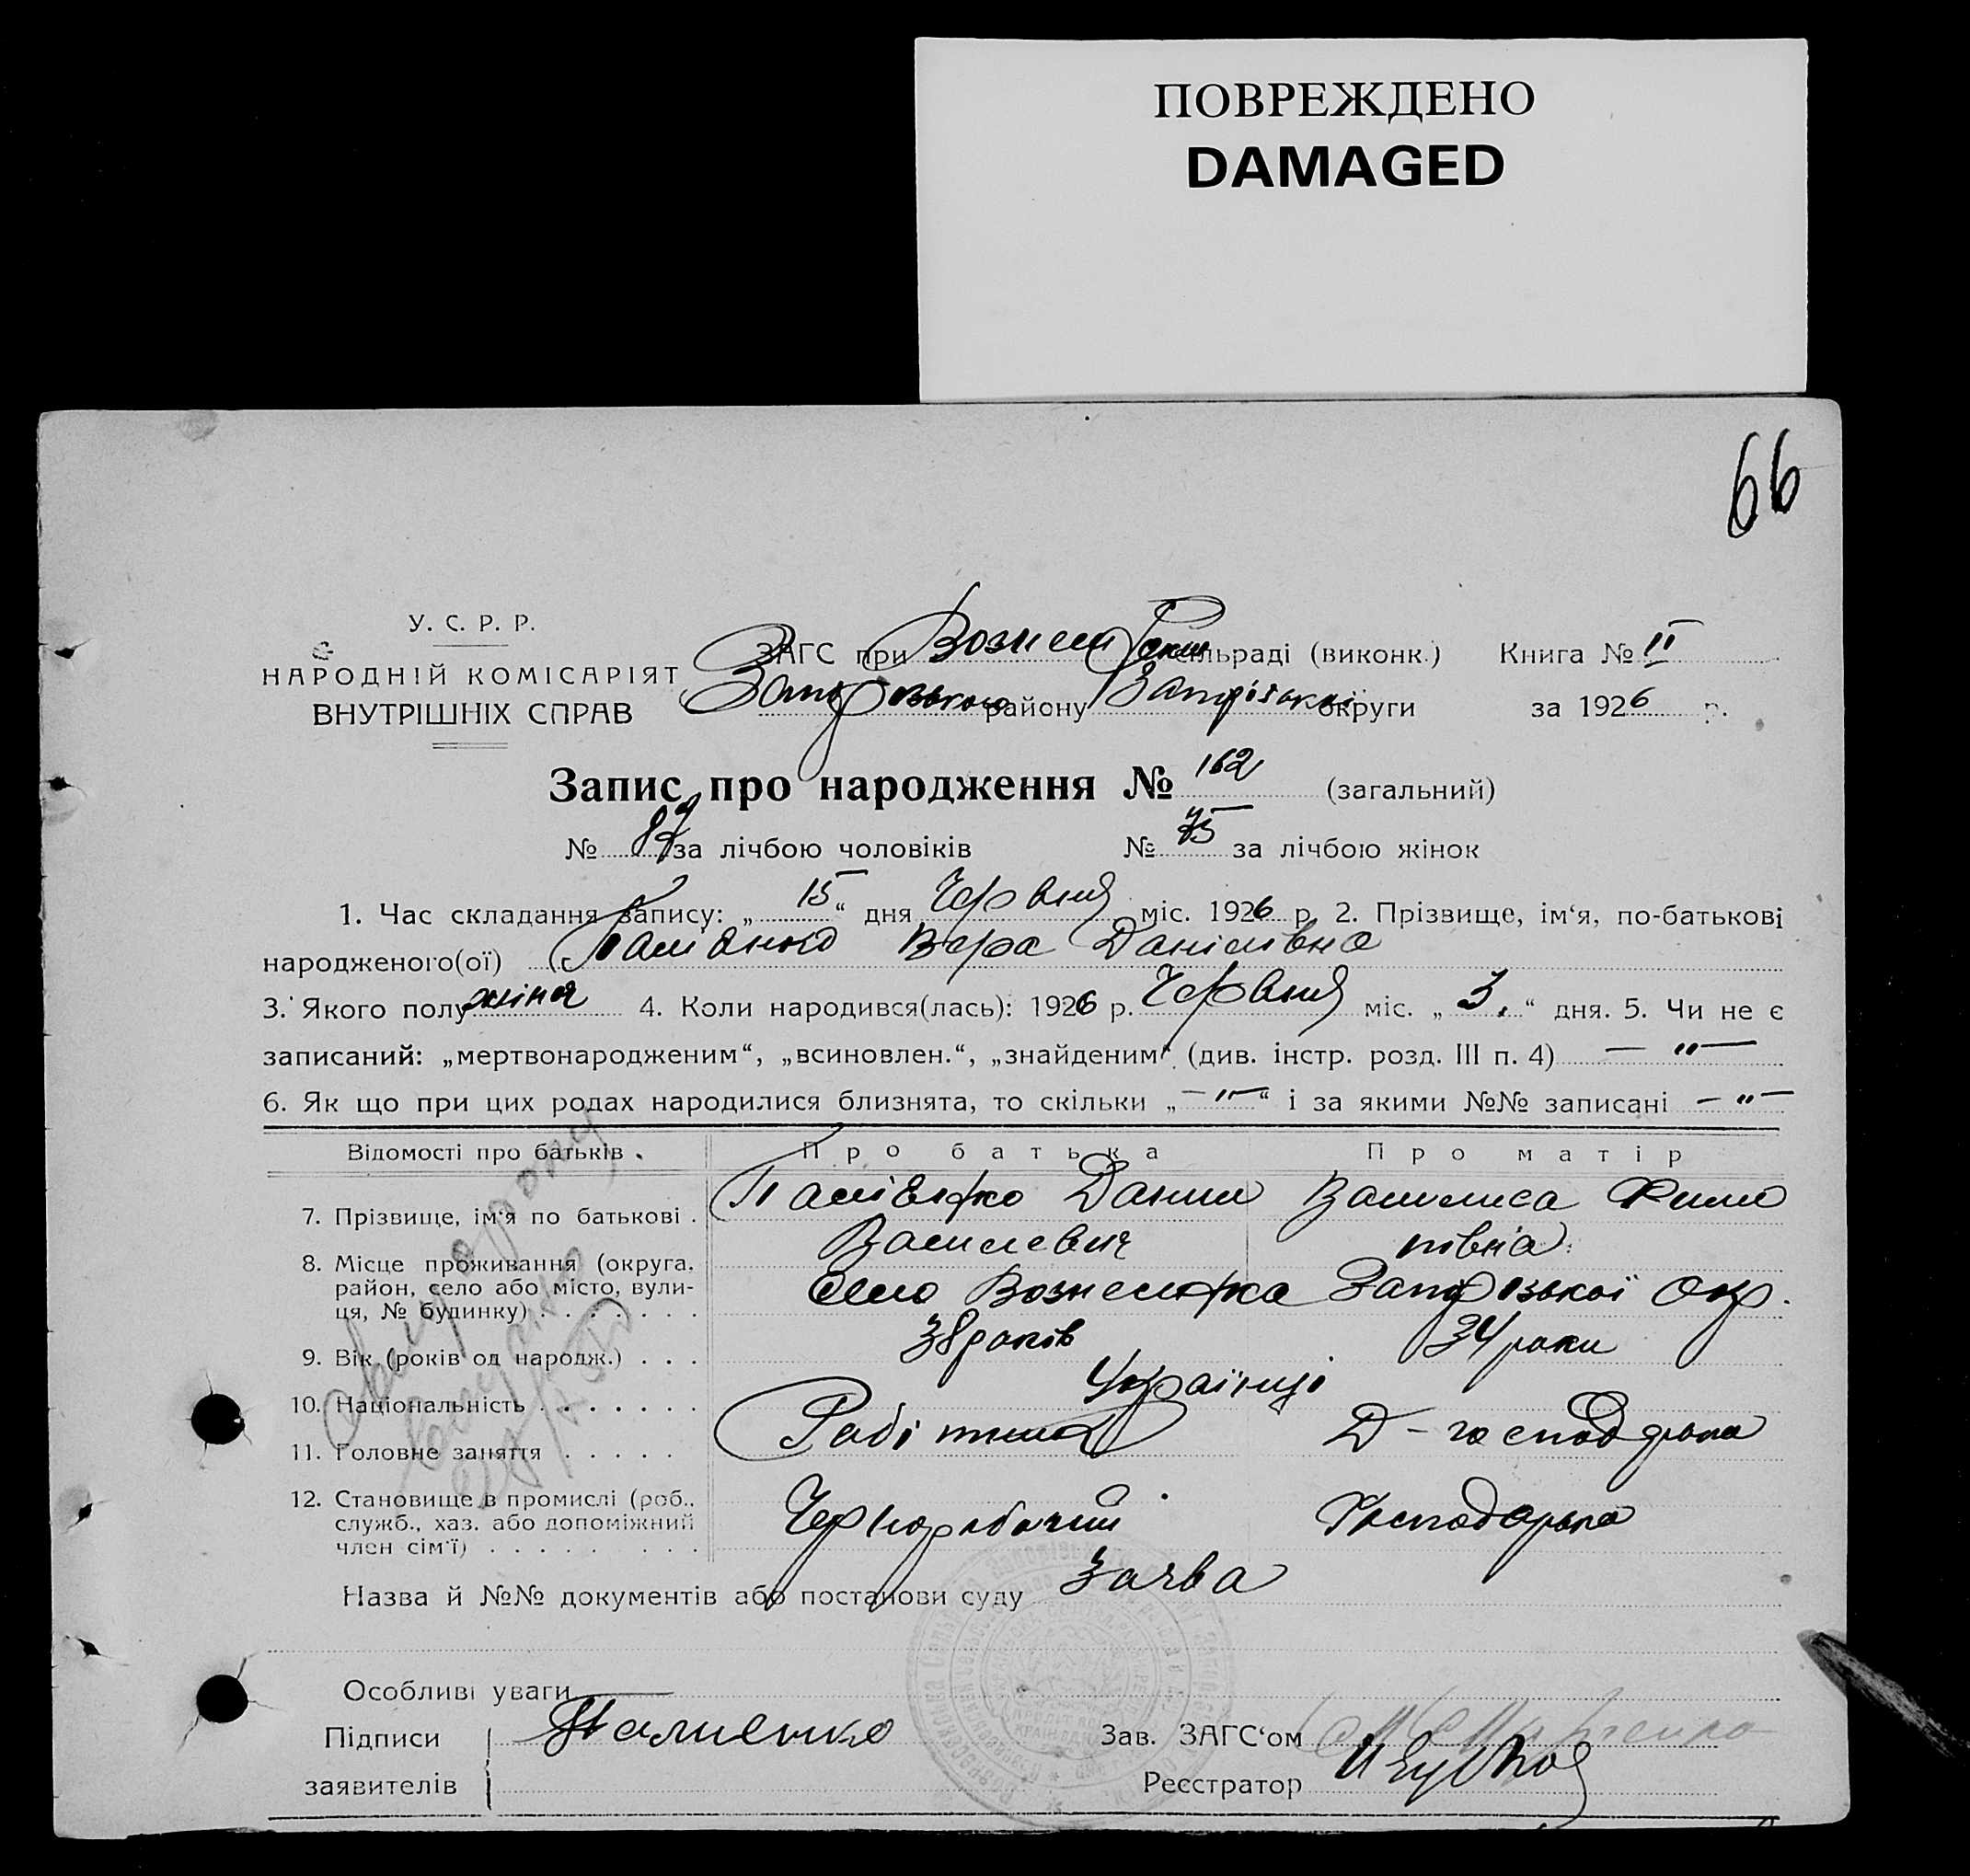 ПОВРЕЖДЕНО
DAMAGED
66
У. С. Р. Р.
НАРОДНІЙ КОМІСАРІЯТ
ВНУТРІШНІХ СПРАВ
ЗАГС при сільраді (виконк.) Книга № II
району округи за 1926 р.
Запис про народження № 162 (загальний)
№ 87 за лічбою чоловіків № 75 за лічбою жінок
1. Час складання запису: „15“ дня Червня міс. 1926 р. 2. Прізвище, ім‘я, по-батькові
народженого(ої) Вера Данілівна
3. Якого полу жіноч 4. Коли народився(лась): 1926 р. Червня міс. „3.“ дня. 5. Чи не є
записаний: „мертвонародженим“, „всиновлен.“, „знайденим“ (див. інстр. розд. III п. 4) — " —
6. Як що при цих родах народилися близнята, то скільки „— " —“ і за якими №№ записані — " —
Відомості про батьків. Про батька Про матір
7. Прізвище, ім‘я по батькові . Данил Василиса Фили
Василевич півна
8. Місце проживання (округа, район, село або місто, вули-
ця, № будинку) . . . . . . . Село Вознесенка Запорізької Окр.
9. Вік (років од народж.) . . . 38 років 34 роки
10. Національність . . . . . . . Українці
11. Головне заняття . . . . . Робітник Д-господарка
12. Становище в промислі (роб.,
служб., хаз. або допоміжний
член сім‘ї) . . . . . . . . . Чернорабочий Господарка
Назва й №№ документів або постанови суду Заява
Особливі уваги
Підписи Зав. ЗАГС‘ом
заявителів Реєстратор